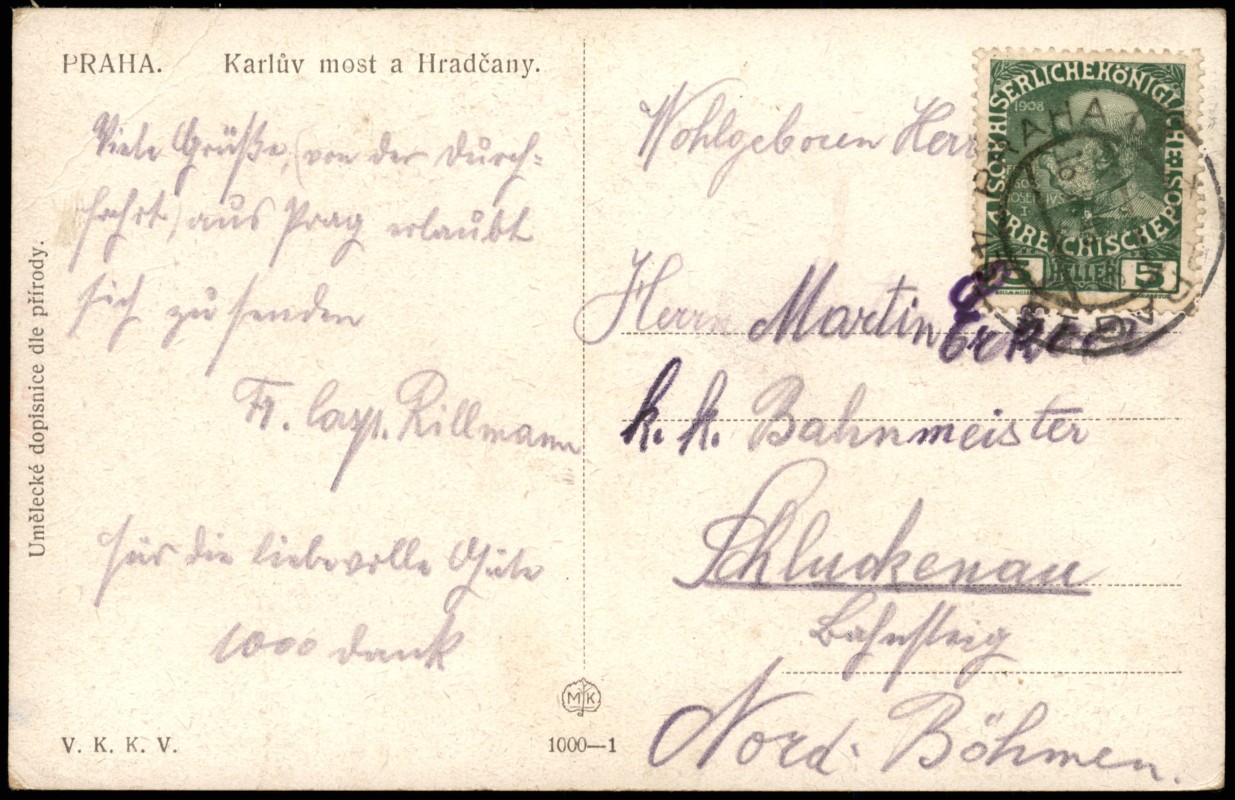 PRAHA. Karlův most a Hradčany.
Viele Grüße, (von der Durch-
fahrt) aus Prag erlaubt
sich zu senden
Fr. Capt. Rillmann
für die liebevolle Güte
1000 dank
Umělecké dopisnice dle přírody.
V. K. K. V.
MK
1000—1
Wohlgeboren Herr
Herrn Martin
k. k. Bahnmeister
Schluckenau
Bahnsteig
Nord: Böhmen.
KAISERLICHEKÖNIGLICHEPOST
ÖSTERREICHISCHE
1908
5 HELLER 5
PRAHA